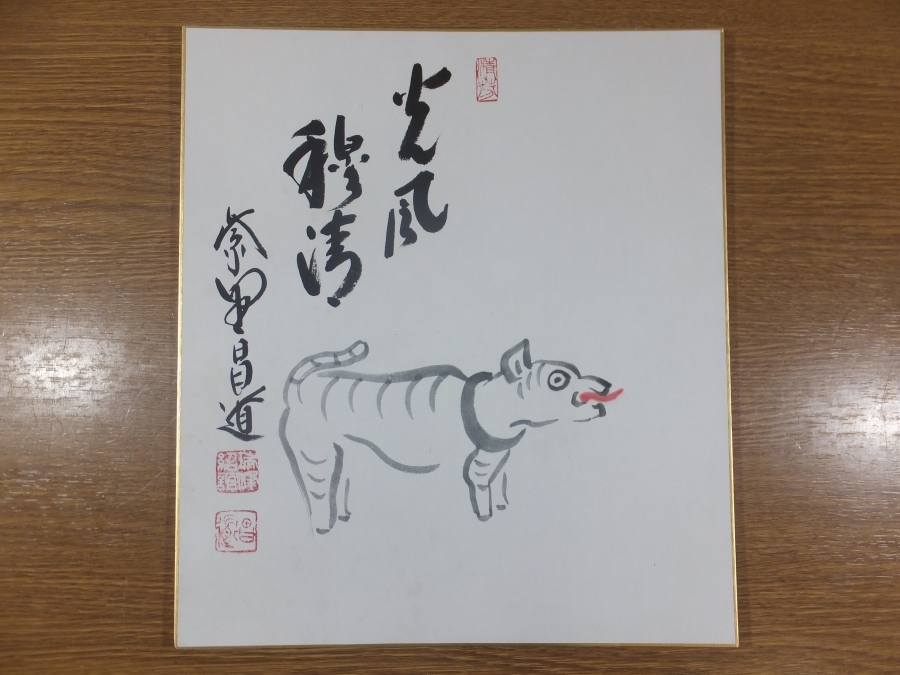 光風
穆清
紫野昌道